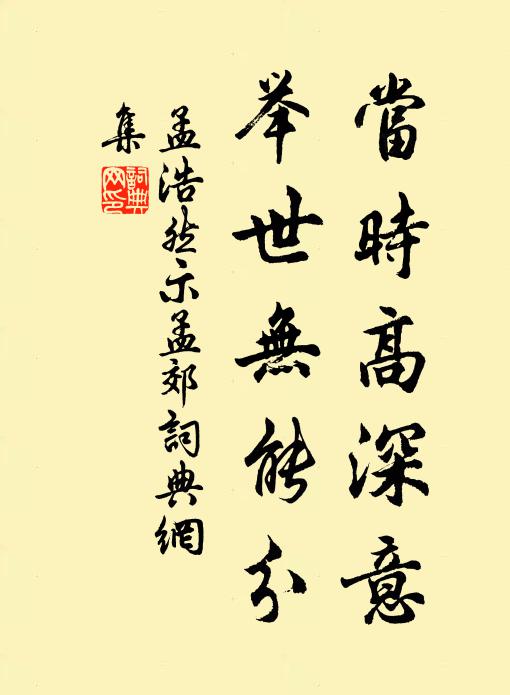 當時高深意
举世無能分
孟浩然示孟郊詞典網
集
詞典
网印